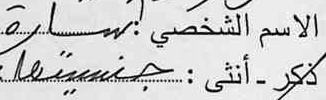 الاسم الشخصي : سارة
ذكر - أنثى : جنسيتها :